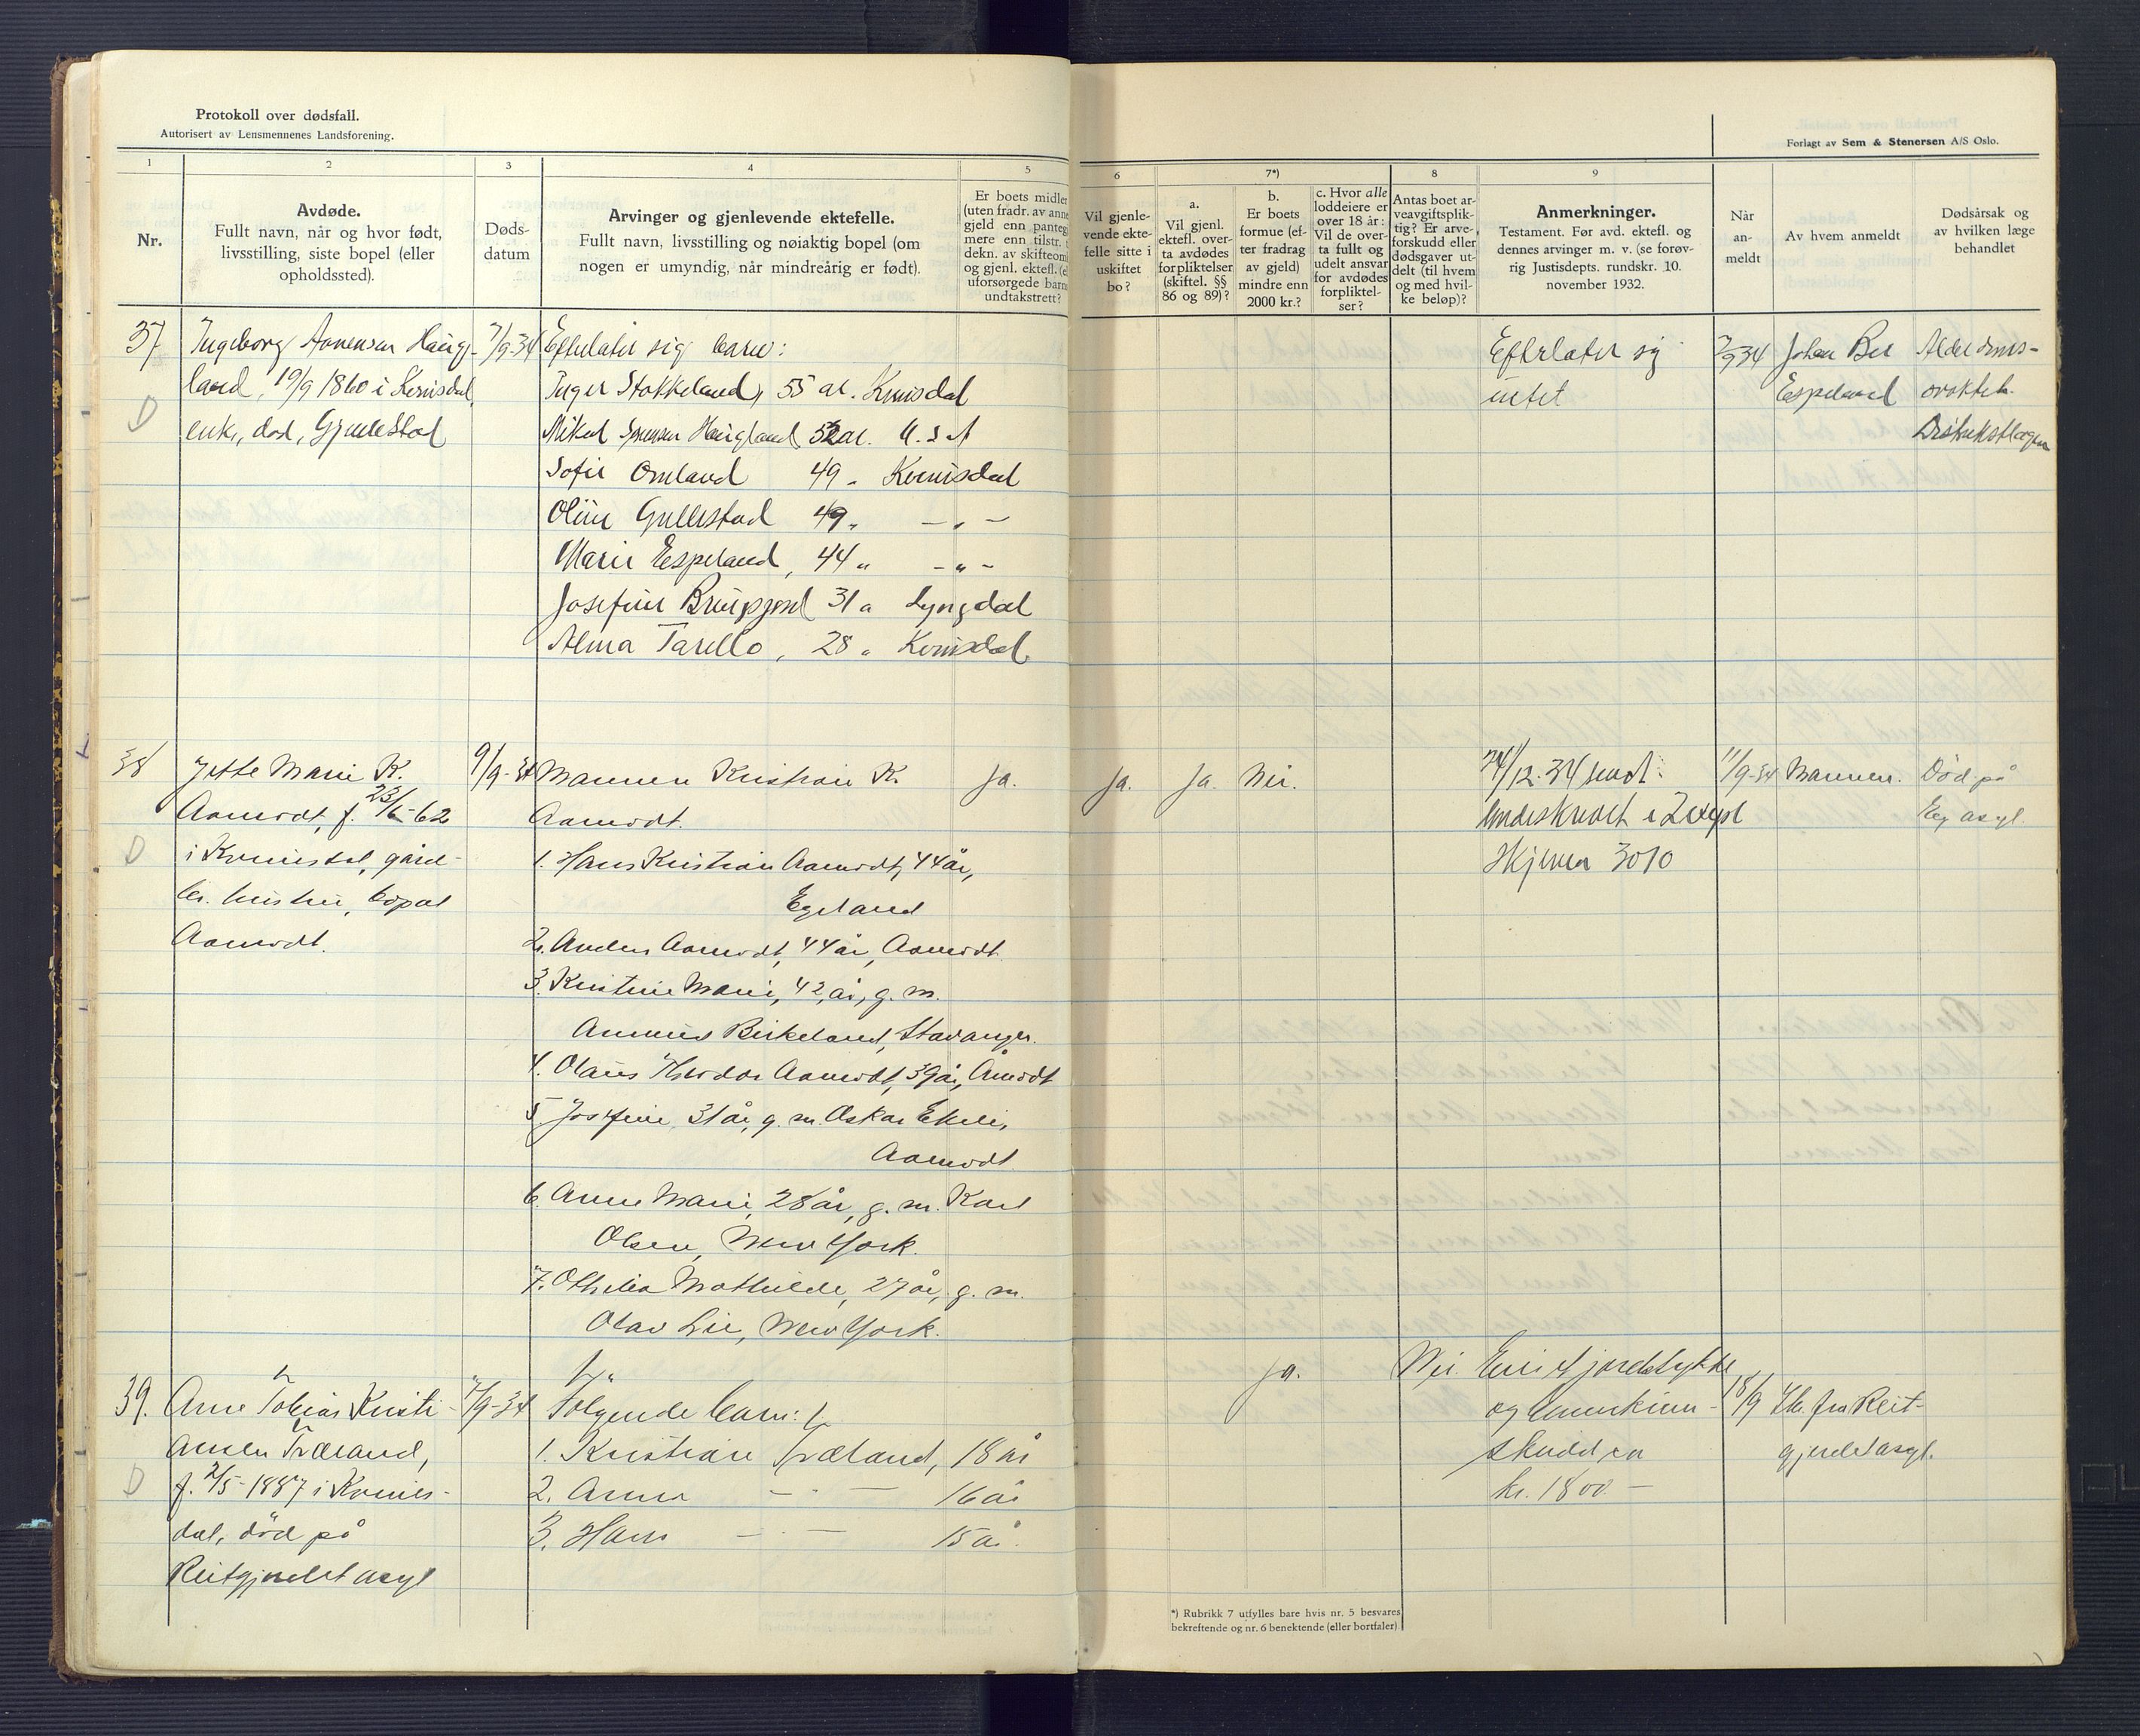 Protokoll over dødsfall.
Autorisert av Lensmennenes Landsforening.
Forlagt av Sem & Stenersen A/S Oslo.
1
2
3
4
5
6
7*)
8
9
Nr.
Avdøde.
Fullt navn, når og hvor født,
livsstilling, siste bopel (eller
opholdssted).
Døds-
datum
Arvinger og gjenlevende ektefelle.
Fullt navn, livsstilling og nøiaktig bopel (om
nogen er umyndig, når mindreårig er født).
Er boets midler
(uten fradr. av anne
gjeld enn panteg
mere enn tilstr.
dekn. av skifteom
og gjenl. ektef. (e
uforsørgede barn
undtakstrett?
Vil gjenle-
vende ekte-
felle sitte i
uskiftet
bo?
a.
Vil gjenl.
ektefl. over-
ta avdødes
forpliktelser
(skiftel. §§
86 og 89)?
b.
Er boets
formue (ef-
ter fradrag
av gjeld)
mindre enn
2000 kr.?
c. Hvor alle
loddeiere er
over 18 år:
Vil de over-
ta fullt og
udelt ansvar
for avdødes
forpliktel-
ser?
Antas boet ar-
veavgiftsplik-
tig? Er arve-
forskudd eller
dødsgaver ut-
delt (til hvem
og med hvil-
ke beløp)?
Anmerkninger.
Testament. Før avd. ektefl. og
dennes arvinger m. v. (se forøv-
rig Justisdepts. rundskr. 10.
november 1932.
Når
an-
meldt
Av hvem anmeldt
Dødsårsak og
av hvilken læge
behandlet
37
D
Ingeborg Haug-
land, 19/9 1860 i Kvinisdal
enke, død, Gjullestad
7/9-34
Efterlater sig barn:
Inger Stokkeland, 55 år. Kvinisdal
Mikal Haugland 52 år. U.S.A
Sofie Omland 49 " Kvinisdal
Oline Gullestad 49 " - " -
Marie Espeland, 44 " - " -
Josefine 31 " Lyngdal
Alma 28 " Kvinisdal
Efterlater sig
intet
7/9 34
Johan
Espeland
Alderdoms-
svakhet.
Distriktslægen
38
D
Jette Marie K.
Aamodt, f. 23/6-62
i Kvinisdal, gård-
br. hustru, bopæl
Aamodt.
9/9-34
Mannen Kristian K.
Aamodt.
1. Hans Kristian Aamodt, 44 år,
Egeland
2. Anders Aamodt, 44 år, Aamodt.
3. Kristine Marie, 42 år, g. m.
Birkeland, Stavanger.
4. Olaus Theodor Aamodt, 39 år, Åmodt
5. Josefine, 31 år, g. m. Oskar
Aamodt.
6. Anne Marie, 28 år, g. m. Karl
Olsen, New York.
7. Othilia Mathilde, 27 år, g. m.
Olav Lie, New York.
Ja.
Ja.
Ja.
Nei.
/12-34
Skjema 3010
11/9-34
Mannen.
Død på
Eg asyl.
39.
D
Arne Tobias Kristi-
ansen Træland,
f. 2/5-1887 i Kvines-
dal, død på
Reitgjerdet asyl
7/9-34
Følgende barn:
1. Kristian Træland, 18 år
2. Arne - " - 16 år
3. Hans - " - 15 år.
Ja.
Nei.
Eier 4 jordstykke
og
skudd ca
kr. 1800 -
18/9
fra Reit-
gjerdet asyl.
*) Rubrikk 7 utfylles bare hvis nr. 5 besvares
bekreftende og nr. 6 benektende (eller bortfaler)